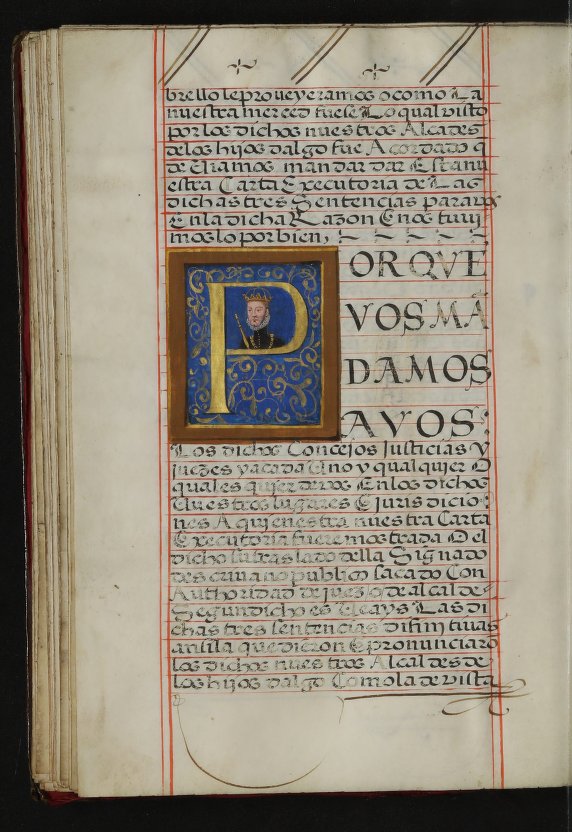 brello le proveyeramos o como La
nuestra merced fuese Lo qual visto
por los dichos nuestros Alcades
de los hijos dalgo fue Acordado q
deviamos mandar dar Esta nu
estra Carta Executoria de Las
dichas tres Sentencias para vos
En la dicha Razon E nos tuui
mos lo por bien,
PORQUE
VOS MÃ
DAMOS
A VOS.
Los dichos Concejos Justicias y
juezes y a cada Uno y qual quier O
quales quier de vos En los dichos
Vuestros lugares E juris dicio
nes A quien esta nuestra Carta
Executoria fuere mostrada O el
dicho su traslado della Signado
de scriuano publico sacado Con
Authoridad de juez o de alcalde
Segun dicho es Veays Las di
chas tres sentencias difinitiuas
ansi la que dieron E pronunciarõ
los dichos nuestros Alcaldes de
los hijos dalgo Como la de vista